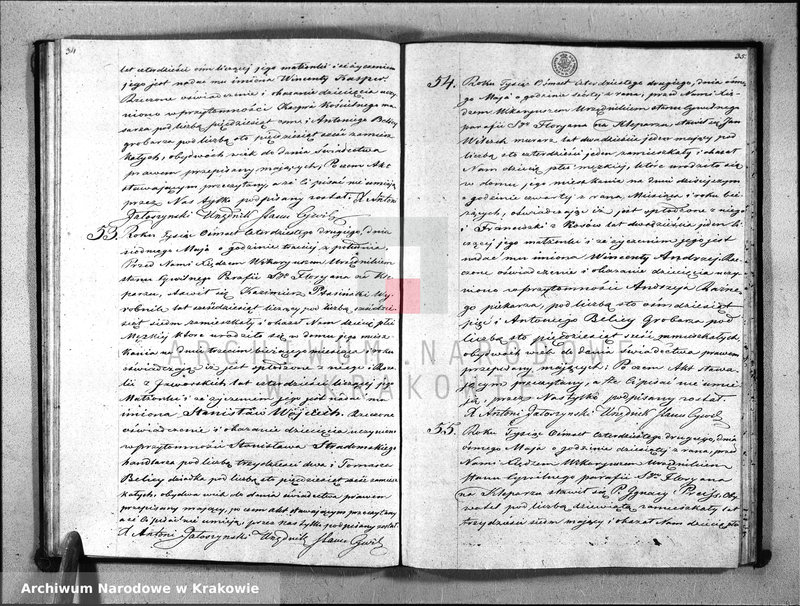 34
lat czterdzieście ośm liczącej jego małżonki i iż życzeniem
jego jest nadać mu imiona Wincenty Kasper.
Rzeczone oświadczenie i okazanie dziecięcia uczy-
niono w przytomności Kaspra
pod liczbą pięćdziesiąt ośm i Antoniego Bilicy
grobarza pod liczbą sto pięćdziesiąt sześć zamiesz-
kałych, obydwóch wiek do dania świadectwa
prawem przepisany mających, Poczem Akt
stawającym przeczytany, a iż Ci pisać nie umieją
przez Nas tylko podpisany został. X Antoni
Jatoszynski Urzędnik Stanu Cywil.
53. Roku Tysiąc Ośmset Czterdziestego drugiego, dnia
siódmego Maja o godzinie trzeciej z południa.
Przed Nami Księdzem Wikaryuszem Urzędnikiem
stanu Cywilnego Parafii Sgo Floryana na Kle-
parzu, stawił się Kazimierz Ptasiński Wy-
robnik lat liczący pod liczbą
siedm zamieszkały i okazał Nam dziecię płci
Męzkiej które urodziło się w domu jego miesz-
kania na dniu trzecim bieżącego miesiąca i roku
oświadczając iż jest spłodzone z niego i
z Jaworskich, lat czterdzieście liczącej jego
Małżonki i że życzeniem jego jest nadać mu
imiona Stanisław Wojciech. Rzeczone
oświadczenie i okazanie dziecięcia uczyniono
w przytomności Stanisława Stradomskiego
handlarza pod liczbą trzydzieści dwa i Tomasza
Bilicy dziadka pod liczbą sto pięćdziesiąt sześć zamiesz-
kałych, obydwa wiek do dania świadectwa prawem
przepisany mający, poczem akt stawającym przeczytany
a iż Ci pisać nie umieją przez Nas tylko podpisany został
X Antoni Jatoszynski Urzędnik Stanu Cywil
35.
54. Roku Tysiąc Ośmset czterdziestego drugiego, dnia ósme-
go Maja o godzinie szóstej z rana, przed Nami Xię-
dzem Wikaryuszem Urzędnikiem stanu Cywilnego
parafii Sgo Floryana na Kleparzu stawił się Jan
murarz lat dwadzieścia jeden mający pod
liczbą sto czterdzieści jeden zamieszkały i okazał
Nam dziecię płci męzkiej, które urodziło się
w domu jego mieszkania na dniu dzisiejszym
o godzinie czwartej z rana Miesiąca i roku bie-
żących, oświadczając iż jest spłodzone z niego
i Franciszki z Kosów lat dwadzieścia jeden li-
czącej jego małżonki i iż życzeniem jego jest
nadać mu imiona Wincenty Andrzej Rze-
czone oświadczenie i okazanie dziecięcia uczy-
niono w przytomności Andrzeja
piekarza, pod liczbą sto ośmdziesiąt
pięć i Antoniego Bilicy Grobarza pod
liczbą sto pięćdziesiąt sześć zamieszkałych,
obydwa wiek do dania świadectwa prawem
przepisany mających; Poczem Akt stawa-
jącym przeczytany, a że Ci pisać nie umie-
ją, przez Nas tylko podpisany został.
X Antoni Jatoszynski Urzędnik Stanu Cywil
55. Roku Tysiąc Ośmset Czterdziestego drugiego, dnia
ósmego Maja o godzinie dziesiątej z rana, przed
Nami Xiędzem Wikaryuszem Urzędnikiem
Stanu Cywilnego parafii Sgo Floryana
na Kleparzu stawił się P. Ignacy Preiss. Oby-
watel pod liczbą dziewiątą zamieszkały lat
trzydzieści siedm mający i okazał Nam dziecię płci
ARCHIWUM NARODOWE
W KRAKOWIE
Archiwum Narodowe w Krakowie